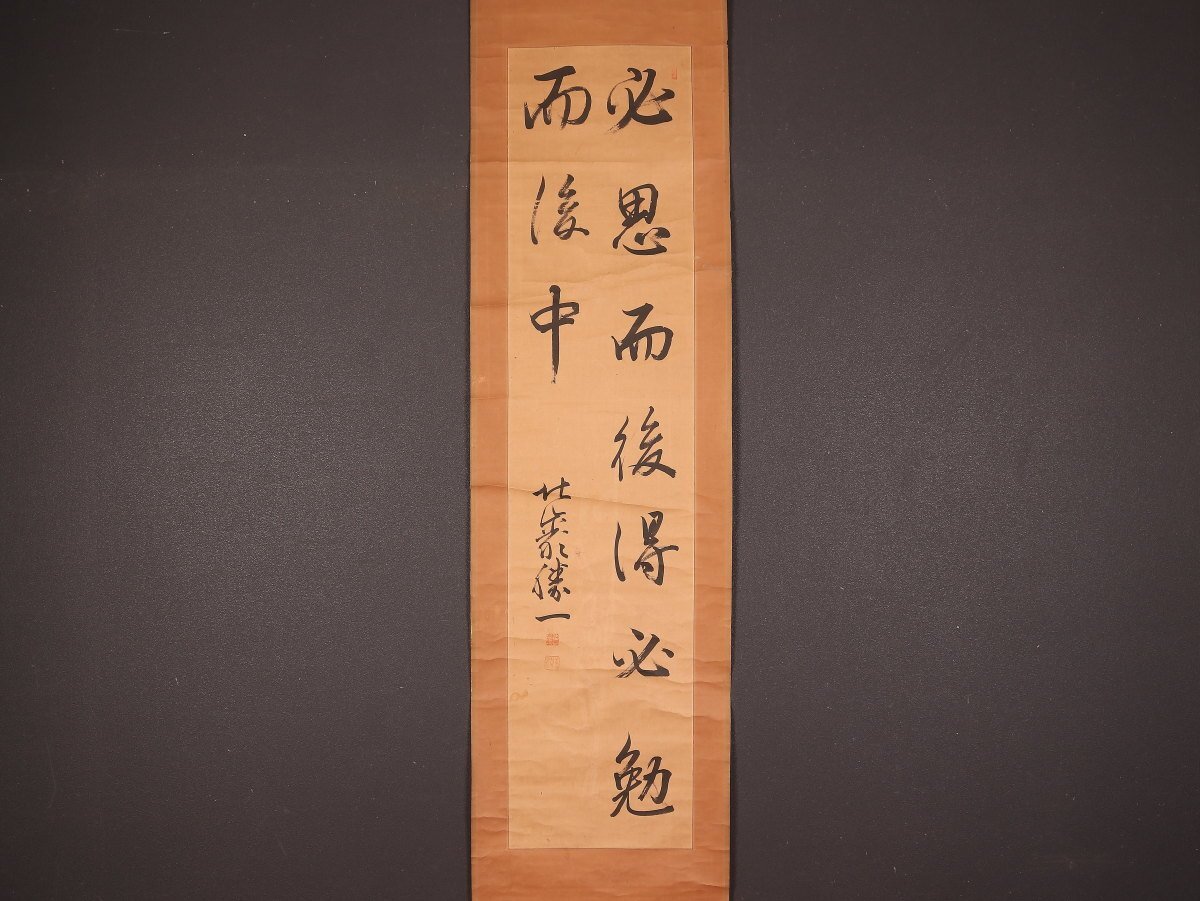 必思而後得必勉
而後中
勝一